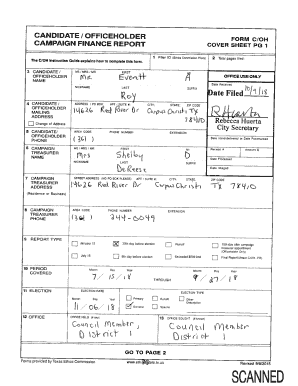 CANDIDATE / OFFICEHOLDER FORM C/OH
CAMPAIGN FINANCE REPORT COVER SHEET PG 1
The C/OH Instruction Guide explains how to complete this form.
1 Filer ID (Ethics Commission Filers) 2 Total pages filed:
3 CANDIDATE / OFFICEHOLDER NAME
MS / MRS / MR FIRST MI
Mr. Everett A
NICKNAME LAST SUFFIX
Roy
OFFICE USE ONLY
Date Filed 10/9/18
Rebecca Huerta
City Secretary
4 CANDIDATE / OFFICEHOLDER MAILING ADDRESS
Change of Address
ADDRESS / PO BOX; APT / SUITE #; CITY; STATE; ZIP CODE
14626 Red River Dr Corpus Christi TX 78410
5 CANDIDATE / OFFICEHOLDER PHONE
AREA CODE PHONE NUMBER EXTENSION
(361)
Date Hand-delivered or Date Postmarked
6 CAMPAIGN TREASURER NAME
MS / MRS / MR FIRST MI
Mrs Shelby D
NICKNAME LAST SUFFIX
DeReese
Receipt # Amount $
Date Processed
Date Imaged
7 CAMPAIGN TREASURER ADDRESS
(Residence or Business)
STREET ADDRESS (NO PO BOX PLEASE); APT / SUITE #; CITY; STATE; ZIP CODE
14626 Red River Dr Corpus Christi TX 78410
8 CAMPAIGN TREASURER PHONE
AREA CODE PHONE NUMBER EXTENSION
(361) 244-0049
9 REPORT TYPE
January 15 30th day before election Runoff 15th day after campaign treasurer appointment (Officeholder Only)
July 15 8th day before election Exceeded $500 limit Final Report (Attach C/OH - FR)
10 PERIOD COVERED
Month Day Year Month Day Year
7/15/18 THROUGH 9/27/18
11 ELECTION
ELECTION DATE ELECTION TYPE
Month Day Year
11/06/18
Primary Runoff Other Description
General Special
12 OFFICE
OFFICE HELD (if any)
Council Member, District 1
13 OFFICE SOUGHT (if known)
Council Member, District 1
GO TO PAGE 2
Forms provided by Texas Ethics Commission www.ethics.state.tx.us Revised
SCANNED